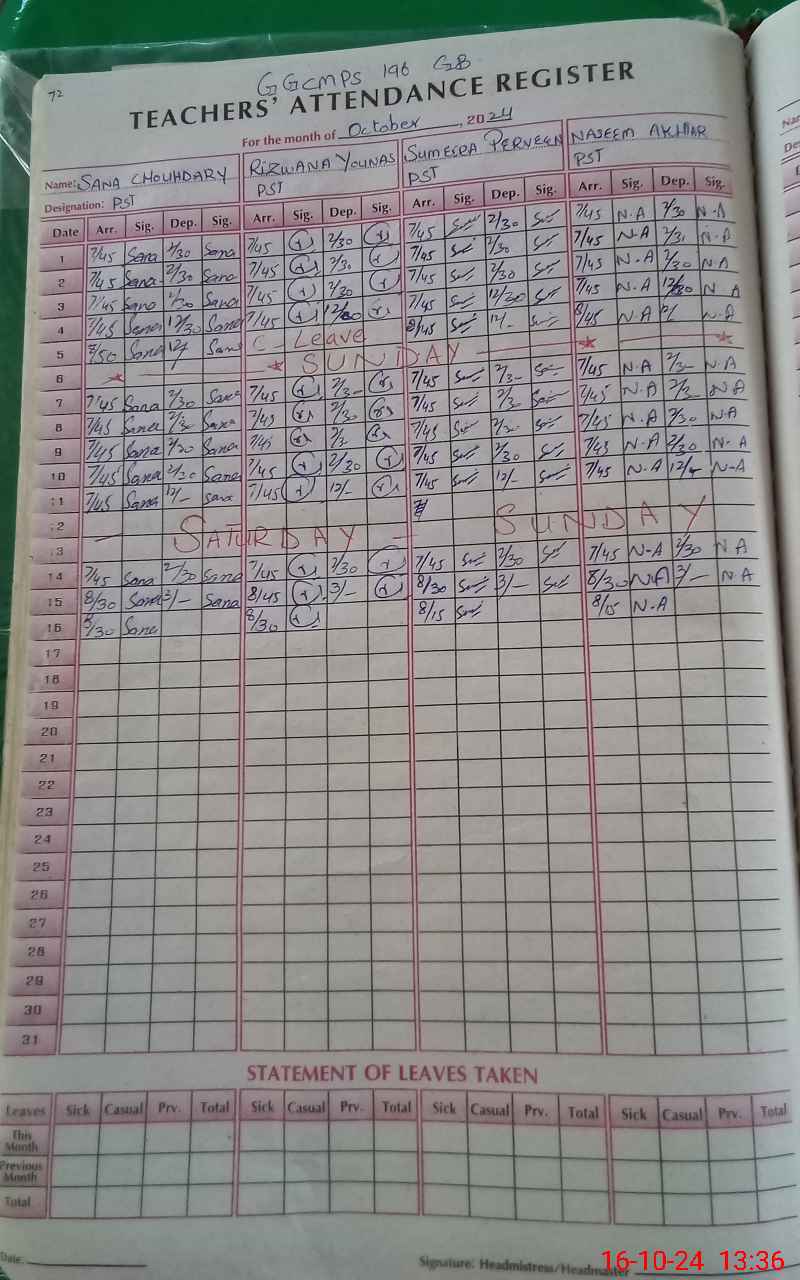 72
GGCMPS 196 GB
TEACHERS' ATTENDANCE REGISTER
For the month of October, 2024
Name: SANA CHOUHDARY RIZWANA YOUNAS SUMEERA PERVEEN NASEEM AKHTAR
Designation: PST PST PST PST
Date Arr. Sig. Dep. Sig. Arr. Sig. Dep. Sig. Arr. Sig. Dep. Sig. Arr. Sig. Dep. Sig.
1 7/45 Sana 2/30 Sana 7/45 2/30 7/45 2/30 7/45 N.A 2/30 N.A
2 7/45 Sana 2/30 Sana 7/45 2/30 7/45 2/30 7/45 N.A N.A
3 7/45 Sana 2/30 Sana 7/45 2/30 7/45 2/30 7/45 N.A 2/30 N.A
4 7/45 Sana 12/30 Sana 7/45 7/45 12/30 7/45 N.A N A
5 7/50 Sana Sana C - Leave 8/45 12/- 8/45 N.A N.A
6 SUNDAY
7 7/45 Sana 2/30 Sana 7/45 2/3- 7/45 2/3- 7/45 N.A 2/3- N.A
8 7/45 Sana Sana 7/45 2/30 7/45 7/45 N.A N.A
9 7/45 Sana 2/30 Sana 7/45 7/45 2/30 7/45 N.A 2/30 N.A
10 7/45 Sana 2/30 Sana 7/45 2/30 7/45 2/30 7/45 N.A 2/30 N-A
11 7/45 Sana 12/- Sana 7/45 12/- 7/45 12/- 7/45 N.A N-A
12 SATURDAY
13 SUNDAY
14 7/45 Sana 2/30 Sana 7/45 2/30 7/45 2/30 7/45 N-A 2/30 N A
15 8/30 Sana 3/- Sana 8/45 3/- 8/30 3/- 8/30 N.A 3/- N.A
16 8/30 Sana 8/30 8/15 8/15 N.A
17
18
19
20
21
22
23
24
25
26
27
28
29
30
31
STATEMENT OF LEAVES TAKEN
Leaves Sick Casual Prv. Total Sick Casual Prv. Total Sick Casual Prv. Total Sick Casual Prv. Total
This Month
Previous Month
Total
Date:
Signature: Headmistress/Headmaster
16-10-24 13:36